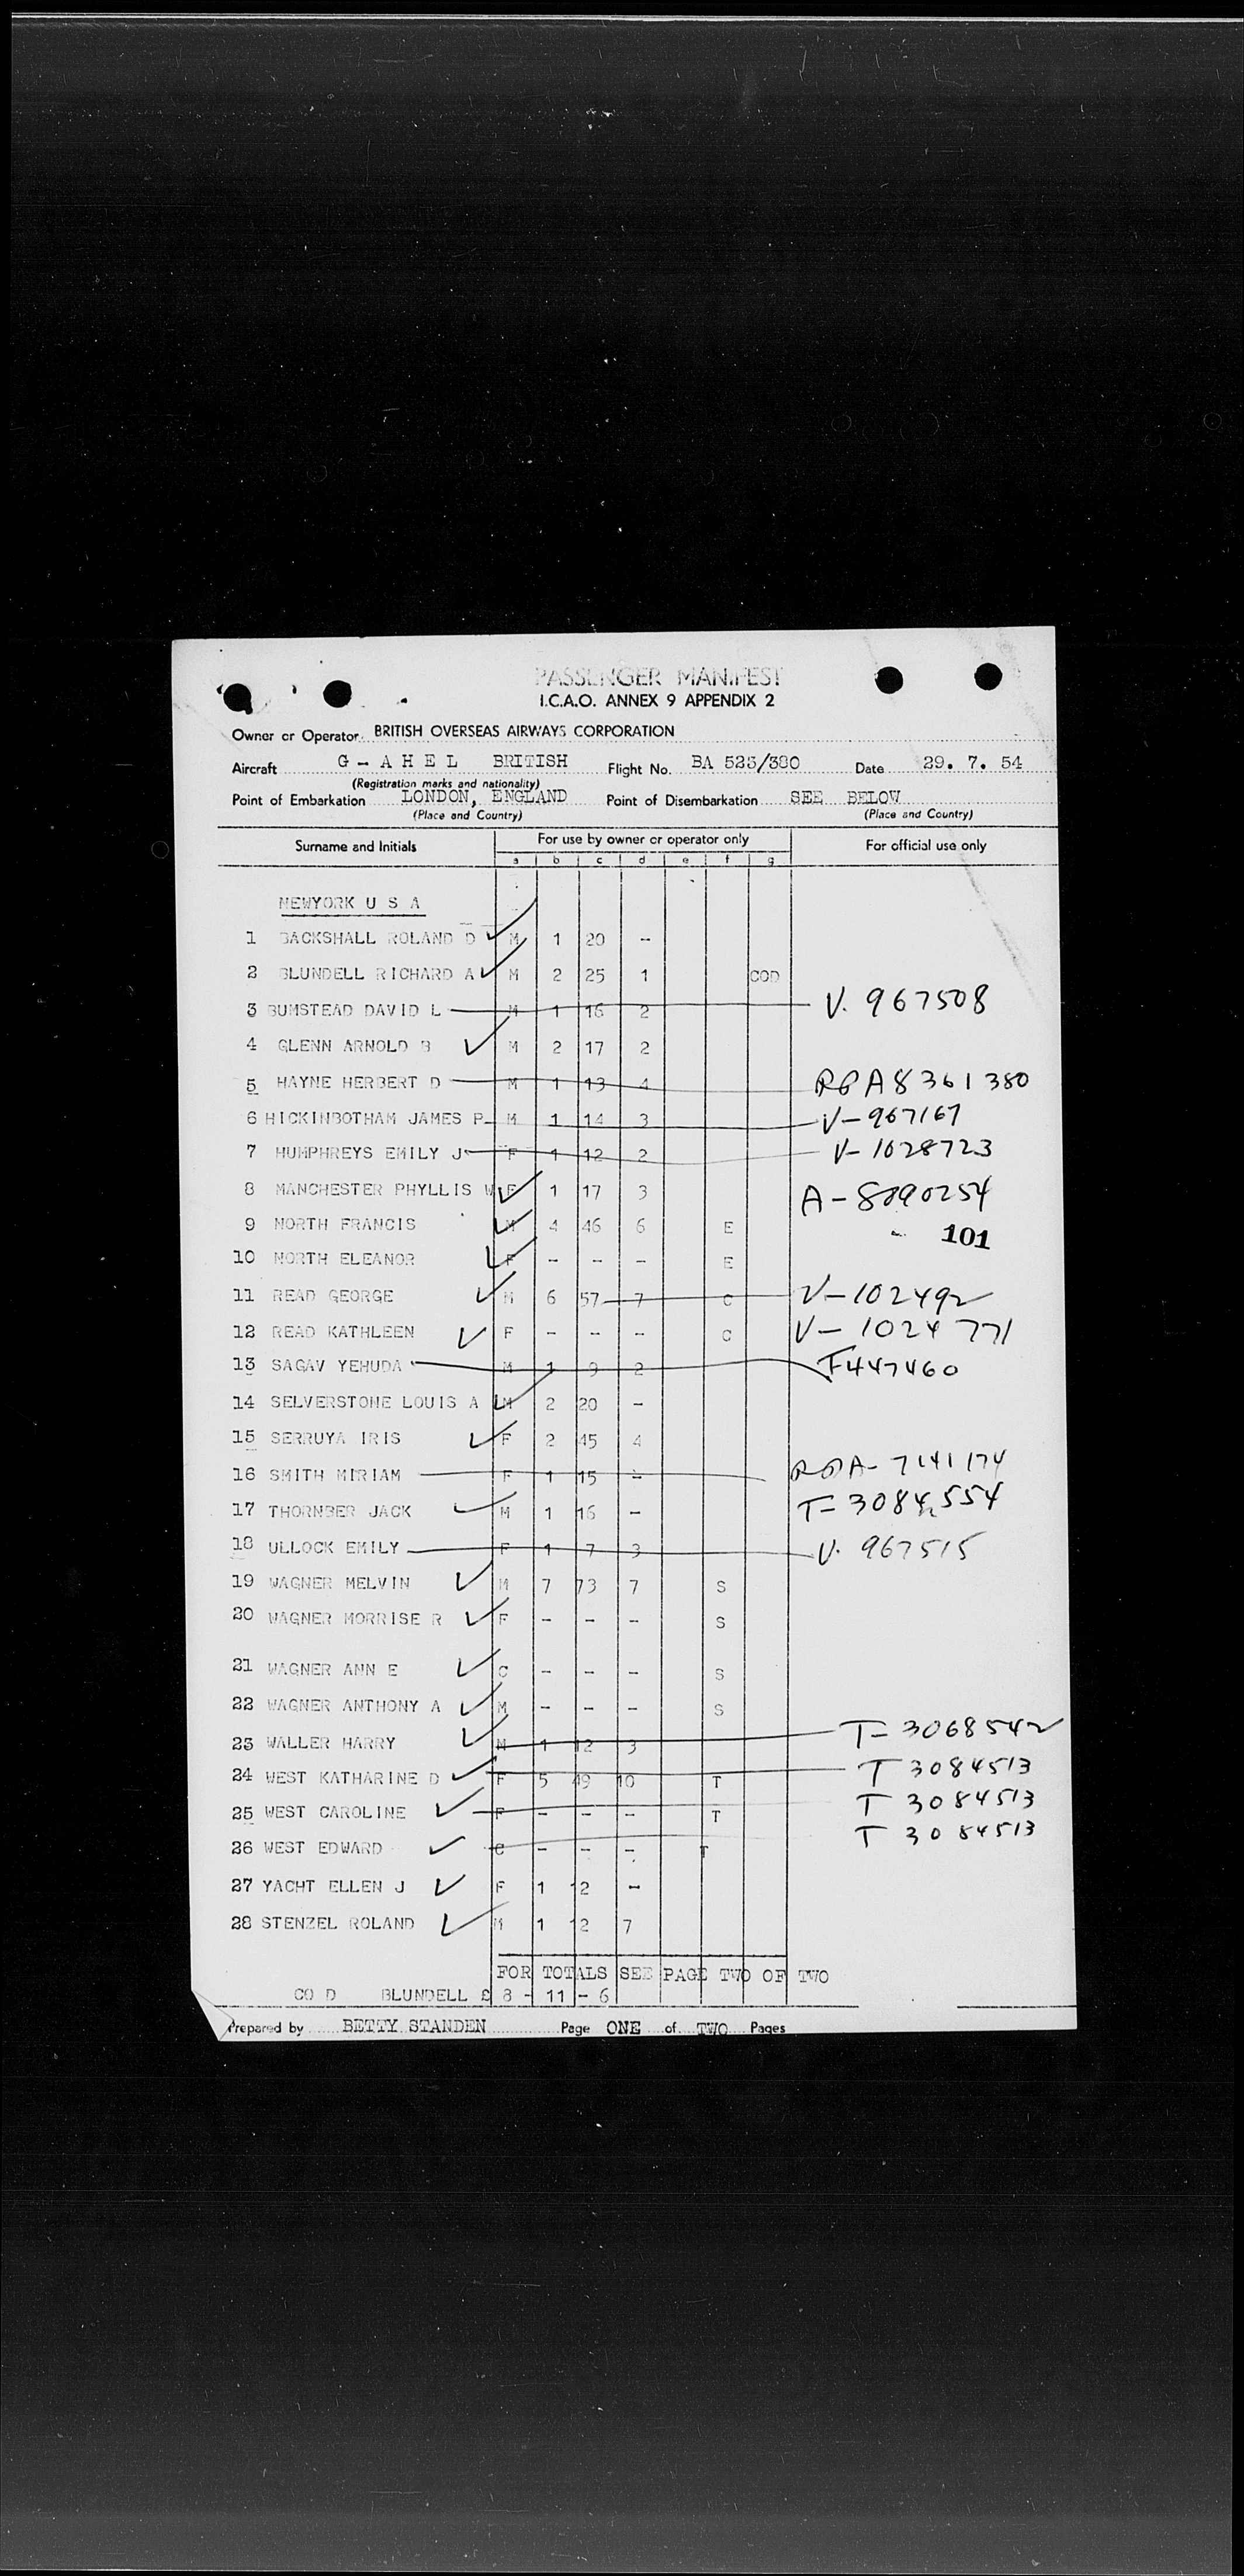 PASSENGER MANIFEST
I.C.A.O. ANNEX 9 APPENDIX 2
Owner or Operator BRITISH OVERSEAS AIRWAYS CORPORATION
Aircraft G - A H E L BRITISH Flight No. BA 525/380 Date 29. 7. 54
(Registration marks and nationality)
Point of Embarkation LONDON, ENGLAND Point of Disembarkation SEE BELOW
(Place and Country) (Place and Country)
Surname and Initials For use by owner or operator only For official use only
a b c d e f g
NEWYORK U S A
1 BACKSHALL ROLAND D M 1 20 -
2 BLUNDELL RICHARD A M 2 25 1 COD
3 BUMSTEAD DAVID L M 1 16 2 V. 967508
4 GLENN ARNOLD B M 2 17 2
5 HAYNE HERBERT D M 1 13 4 A8361380
6 HICKINBOTHAM JAMES P M 1 14 3 V-967167
7 HUMPHREYS EMILY J F 1 12 2 V-1028723
8 MANCHESTER PHYLLIS W F 1 17 3 A-8890254
9 NORTH FRANCIS M 4 46 6 E 101
10 NORTH ELEANOR F - - - E
11 READ GEORGE M 6 57 7 C V-102492
12 READ KATHLEEN F - - - C V-1024771
13 SAGAV YEHUDA M 1 9 2 F447460
14 SELVERSTONE LOUIS A M 2 20 -
15 SERRUYA IRIS F 2 45 4
16 SMITH MIRIAM F 1 15 - A-7141174
17 THORNBER JACK M 1 16 - T-3084554
18 ULLOCK EMILY F 1 7 3 V. 967515
19 WAGNER MELVIN M 7 73 7 S
20 WAGNER MORRISE R F - - - S
21 WAGNER ANN E C - - - S
22 WAGNER ANTHONY A M - - - S
23 WALLER HARRY M 1 12 3 T-3068542
24 WEST KATHARINE D F 5 49 10 T T 3084513
25 WEST CAROLINE F - - - T T 3084513
26 WEST EDWARD C - - - T T 3084513
27 YACHT ELLEN J F 1 12 -
28 STENZEL ROLAND M 1 12 7
FOR TOTALS SEE PAGE TWO OF TWO
CO D BLUNDELL £ 8 - 11 - 6
Prepared by BETTY STANDEN Page ONE of TWO Pages